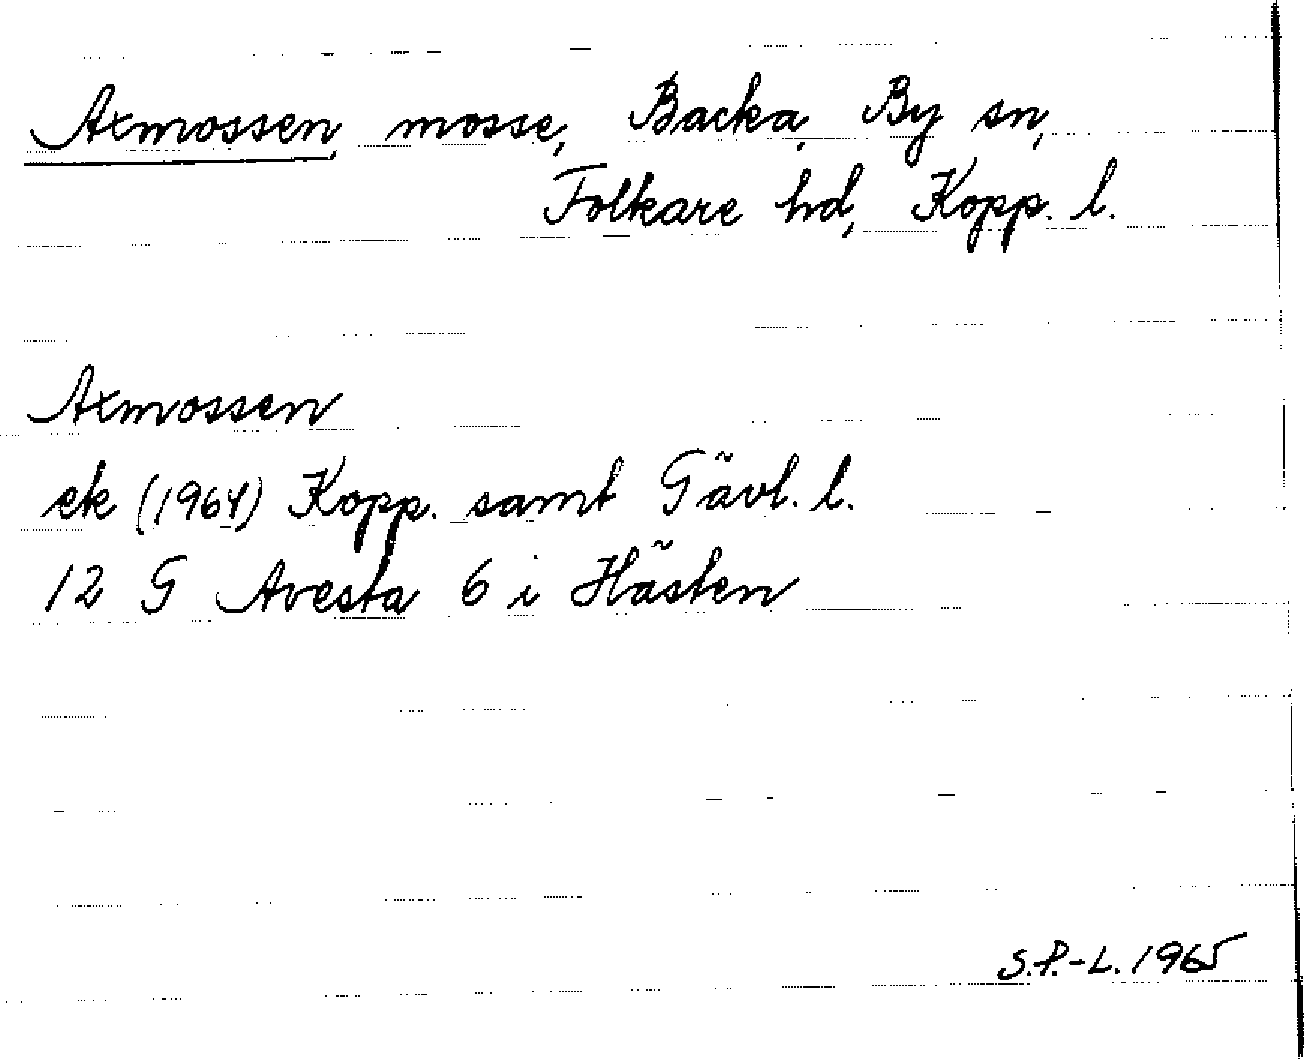 Axmossen, mosse, Backa, By sn,
Folkare hd, Kopp. l.
Axmossen
ek (1964) Kopp. samt Gävl. l.
12 G Avesta 6 i Hästen
S.P.-L. 1965